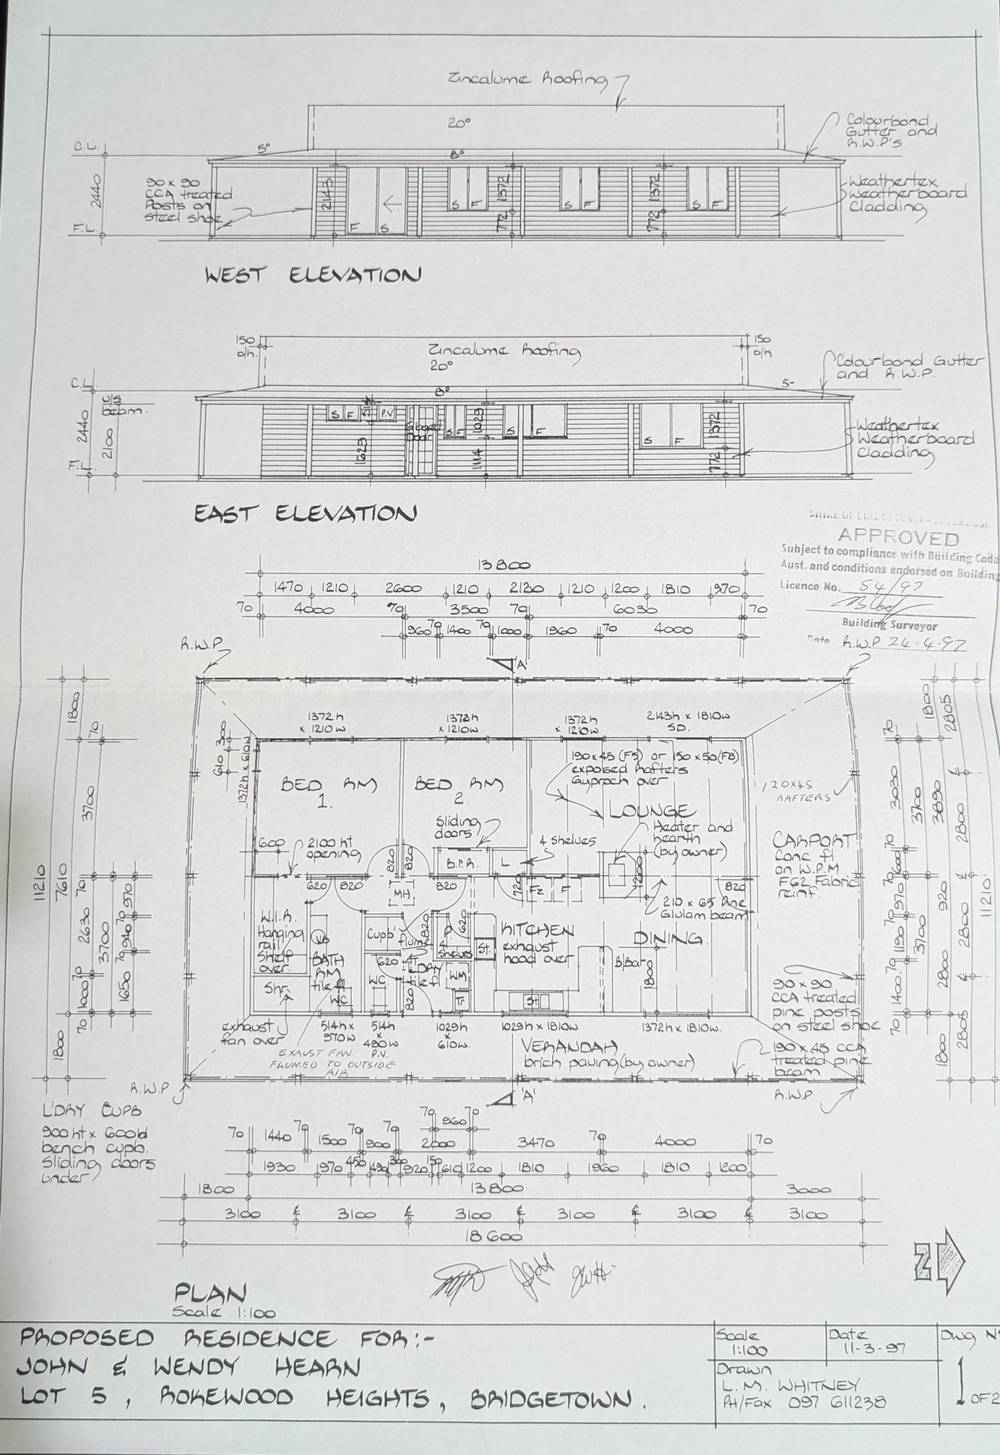 Zincalume Roofing
20°
C.L.
5°
8°
Colourbond
Gutter and
R.W.P's
90 x 90
CCA treated
Posts on
steel shoe
2440
2143
1372
1372
Weathertex
Weatherboard
Cladding
S F
S F
S F
F S
772
772
F.L.
WEST ELEVATION
150
o/h.
Zincalume Roofing
20°
150
o/h
Colourbond Gutter
and R.W.P.
C.L.
U/S
beam.
8°
5°
2440
2100
S F
P.V
1029
1372
1629
1114
F
S F
772
Weathertex
Weatherboard
Cladding
F.L.
EAST ELEVATION
APPROVED
Subject to compliance with Building Code
Aust. and conditions endorsed on Building
Licence No. 54/97
Building Surveyor
Date 24-4-97
13800
1470 1210 2600 1210 2120 1210 1200 1810 970
70 4000 70 3500 70 6030 70
960 70 1400 70 1000 1960 70 4000
R.W.P
R.W.P
'A'
1372h
x 1210w
1372h
x 1210w
1372h
x 1210w
2143h x 1810w
S.D.
1800
70
3700
610 300
1372h x 610w
190x45 (F5) or 150x50 (F8)
exposed Rafters
Gyprock over
BED RM
1.
BED RM
2
LOUNGE
120x45
RAFTERS
sliding
doors
4 shelves
Heater and
hearth
(by owner)
CARPORT
conc fl
on W.P.M
F62 Fabric
reinf.
600
2100 ht
opening
820
820
B.I.R.
L
1200
620
820
MH
820
720
Fz F
820
210 x 65 Pine
Glulam beam
11210
7610
2630
3700
W.I.R.
Hanging
rail
Shelf
over.
VB
BATH
RM
tile fl
Cupb
820
620
4
shelves
St.
KITCHEN
exhaust
hood over
DINING
B/Bar
1800
620
WC
L'DRY
tile fl
WM
Tr
820
Shr.
WC
1800
exhaust
fan over
514h x
970w
514h
x
490w
P.V.
1029h
x
610w.
1029h x 1810w
1372h x 1810w.
EXAUST FAN
FLUMED TO OUTSIDE
AIR
VERANDAH
brick paving (by owner)
90 x 90
CCA treated
pine posts
on steel shoe
190 x 45 CCA
treated pine
beam
R.W.P
R.W.P
'A'
1800
2805
3030
3700
3890
2800
11210
920
3700
2800
1400
1800
2805
L'DRY CUPB
900 ht x 600 wd
bench cupb.
sliding doors
under
70 1440 70 1500 70 900 70 2000 3470 70 4000 70
960
1930 970 450 490 920 610 1200 1810 1960 1810 1200
1800 13800 3000
3100 3100 3100 3100 3100 3100
18600
PLAN
Scale 1:100
N
PROPOSED RESIDENCE FOR:-
JOHN & WENDY HEARN
LOT 5, ROKEWOOD HEIGHTS, BRIDGETOWN.
Scale
1:100
Date
11-3-97
Dwg No
1 OF 2
Drawn
L. M. WHITNEY
PH/Fax 097 611238